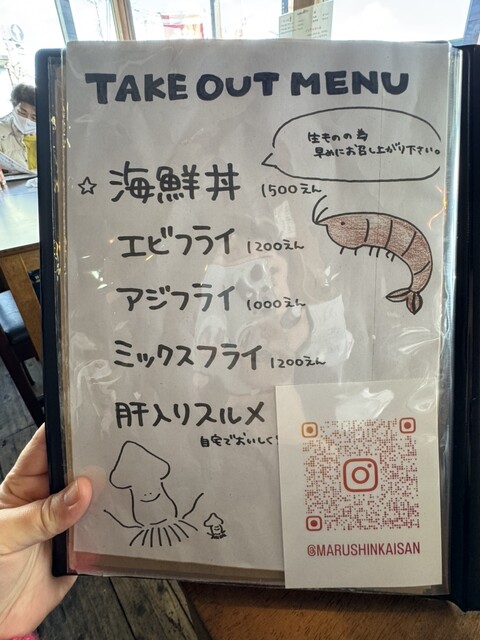 TAKE OUT MENU
生ものの為
早めにお召し上がり下さい。
☆ 海鮮丼 1500えん
エビフライ 1200えん
アジフライ 1000えん
ミックスフライ 1200えん
肝入りスルメ
自宅でおいしく
@MARUSHINKAISAN